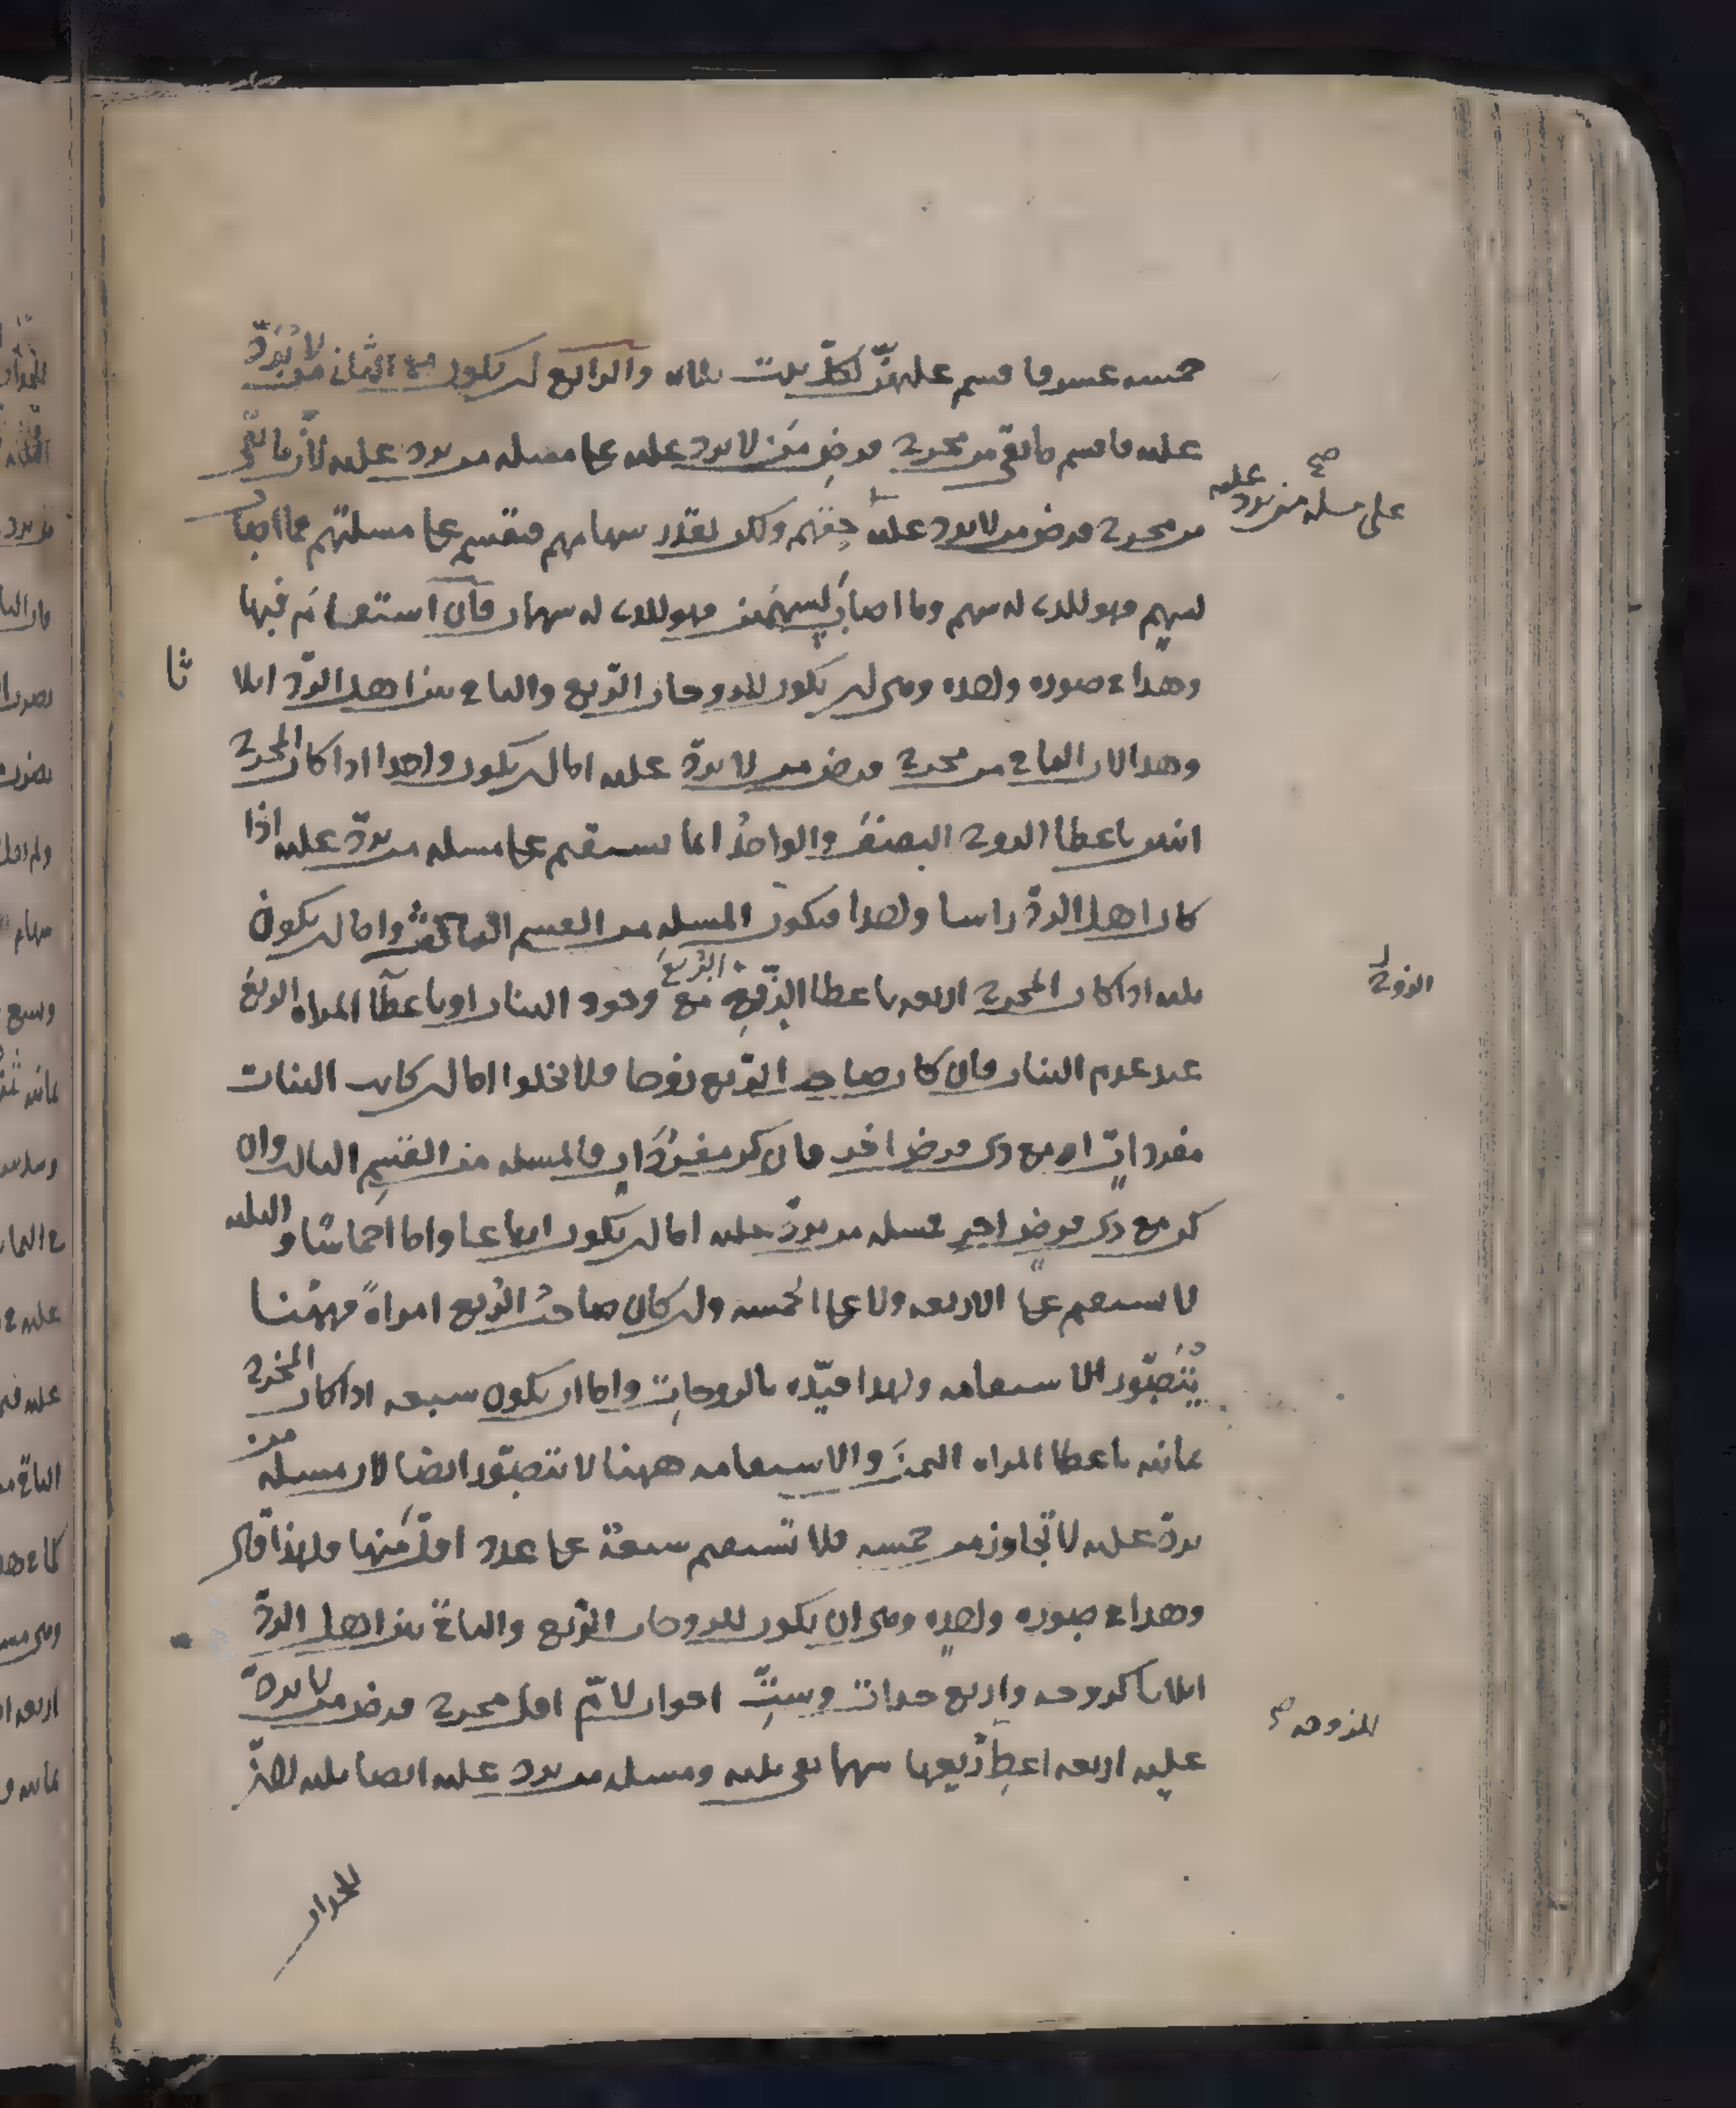 خمسه عشر فاقسم عليهنّ لكلّ بنت ثلاثه والرابع ان يكون مع الثاني من لا يُرَدّ
عليه فاقسم ما بقى من مخرج فرضِ مَن لا يرد عليه على مسئله من يرد عليه لانّ ما بقى
من مخرج فرض من لا يرد عليه حقهم ولكن بقدر سهامهم فتقسم على مسئلتهم فما اصاب
لسهم فهو للذى له سهم وما اصاب لسهمَين فهو للذى له سهمان فان استقام فيها
وهذا فى صوره واحده وهى ان يكون للزوجات الرّبع والباقى بين اهل الردّ اثلاثا
وهذا لان الباقى من مخرج فرض من لا يردّ عليه اما ان يكون واحدا اذا كان المخرج
اثنين باعطا الزوج النصفَ والواحدُ انما يستقيم على مسئله من يردّ عليه اذا
كان اهل الردّ راسا واحدا فيكون المسئله من القسم الثالث واما ان يكون
ثلثه اذا كان المخرج اربعه باعطا الزوج الرّبعَ مع وجود البنات او باعطآ المراه الربعَ
عند عدم البنات فان كان صاحب الرّبع زوجا فلا يخلوا اما ان كانت البنات
مفرداتٍ او مع ذى فرض اخر فان كن مفردَاتٍ فالمسئله من القسمِ الثالث وان
كن مع ذى فرضٍ اخرَ فمسئله من يردّ عليه اما ان يكون ارباعا واما اخماسًا والثلثه
لا يستقيم على الاربعه ولا على الخمسه وان كان صاحبُ الرّبع امراةً فههُنا
يُتَصَوّر الاستقامه ولهذا قيّده بالزوجاتِ واما ان يكون سبعه اذا كان المخرج
ثمانيه باعطا المراه الثمنَ والاستقامه ههنا لا تتصوّر ايضا لان مسئله من
يردّ عليه لا تجاوز من خمسه فلا تستقيم سبعةٌ على عدد اقلّ منها فلهذا قال
وهذا فى صوره واحده وهى ان يكون للزوجات الرّبع والباقى بين اهل الردّ
اثلاثا كزوجه واربع جدات وستِّ اخوات لامّ اقل مخرج فرض من لا يردّ
عليه اربعه اعطِ رُبعها سهما بقى ثلثه ومسئله من يرد عليه ايضا ثلثه لانّ
على مسئله من يرد عليه صح
الزوج
كزوجه صح
للجدات